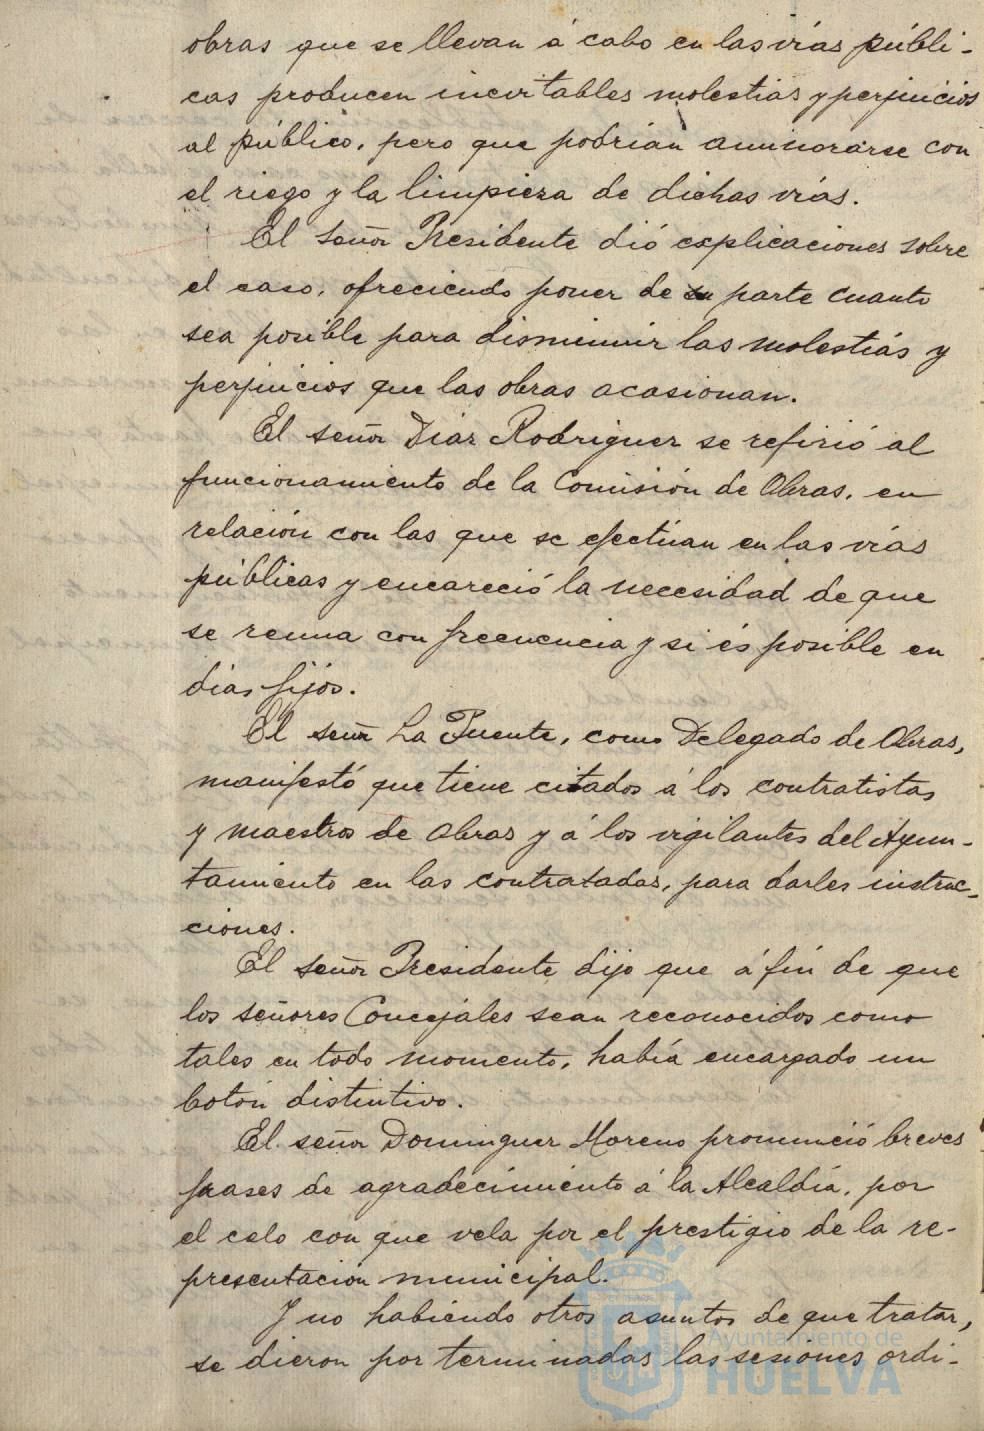 obras que se llevan á cabo en las vías públi-
cas producen inevitables molestias y perjuicios
al público, pero que podrían aminorarse con
el riego y la limpieza de dichas vías.
El señor Presidente dió explicaciones sobre
el caso, ofreciendo poner de su parte cuanto
sea posible para disminuir las molestiás y
perjuicios que las obras acasionan.
El señor Diaz Rodriguez se refirió al
funcionamiento de la Comisión de Obras, en
relación con las que se efectúan en las vías
públicas y encareció la necesidad de que
se reuna con frecuencia y si és posible en
dias fijos.
El señor La Puente, como Delegado de Obras,
manifestó que tiene citados á los contratistas
y maestros de obras y á los vigilantes del Ayun-
tamiento en las contratadas, para darles instruc-
ciones.
El señor Presidente dijo que á fin de que
los señores Concejales sean reconocidos como
tales en todo momento, había encargado un
botón distintivo.
El señor Dominguez Moreno pronunció breves
frases de agradecimiento á la Alcaldía, por
el celo con que vela por el prestigio de la re-
presentación municipal.
Y no habiendo otros asuntos de que tratar,
se dieron por terminadas las sesiones ordi-
Ayuntamiento de
HUELVA